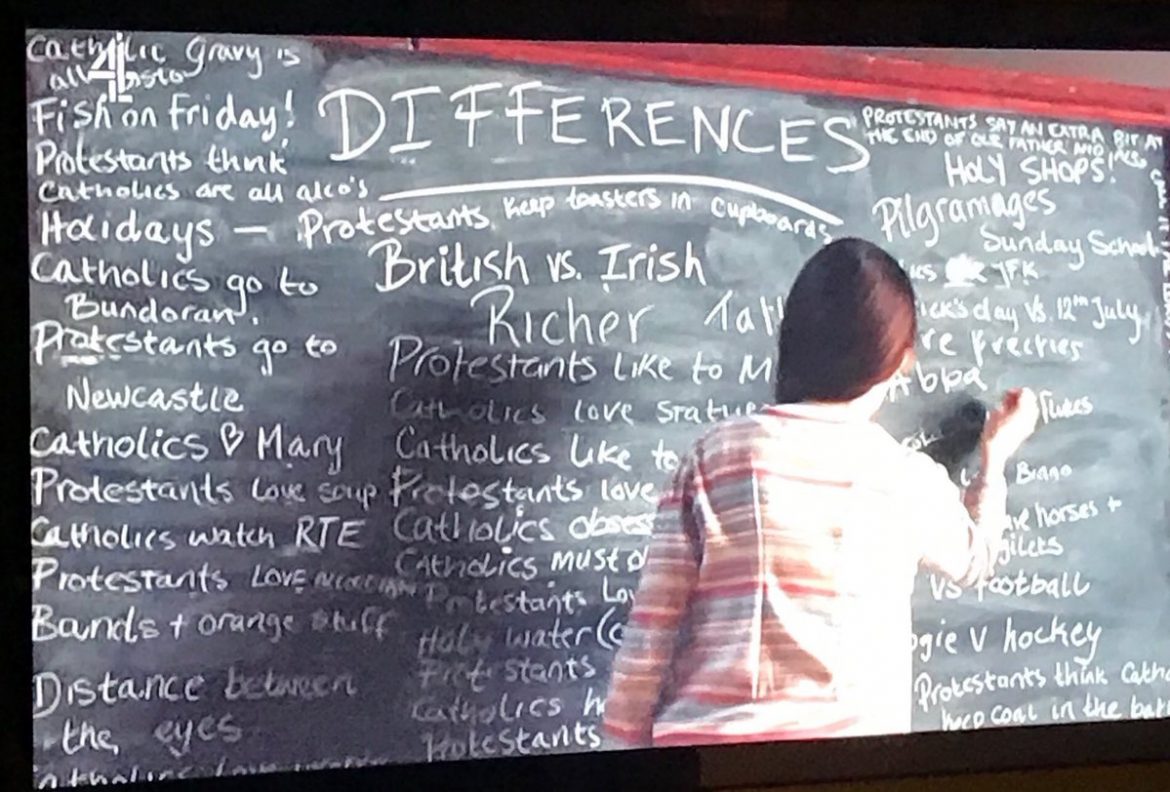 Catholic Gravy is
all Bisto
Fish on Friday!
Protestants think
Catholics are all alco's
Holidays –
Catholics go to
Bundoran.
Protestants go to
Newcastle
Catholics ♡ Mary
Protestants Love soup
Catholics watch RTE
Protestants LOVE
Bands + orange stuff
Distance between
the eyes
DIFFERENCES
Protestants keep toasters in cupboards
British vs. Irish
Richer
Protestants like to
Catholics love statue
Catholics like to
Protestants love
Catholics obsess
Catholics must
Protestants Lov
Holy water
Protestants
Catholics h
Protestants
PROTESTANTS SAY AN EXTRA BIT AT
THE END OF OUR FATHER AND
HOLY SHOPS!
Pilgramages
Sunday School
JFK
ick's day vs. 12th July
re freckles
Abba
Flutes
horses +
gilets
vs football
ogie v hockey
Protestants think Catho
keep coal in the bat
4